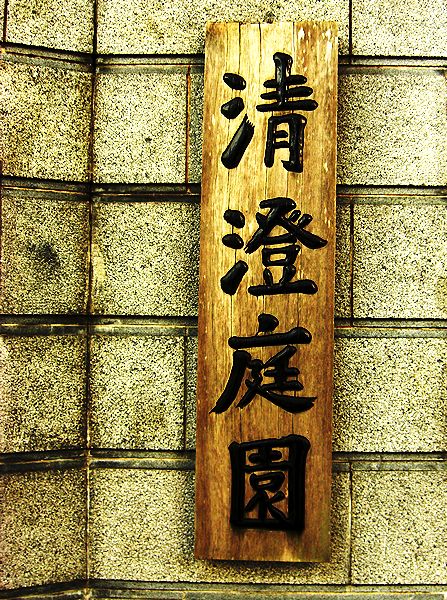 清澄庭園